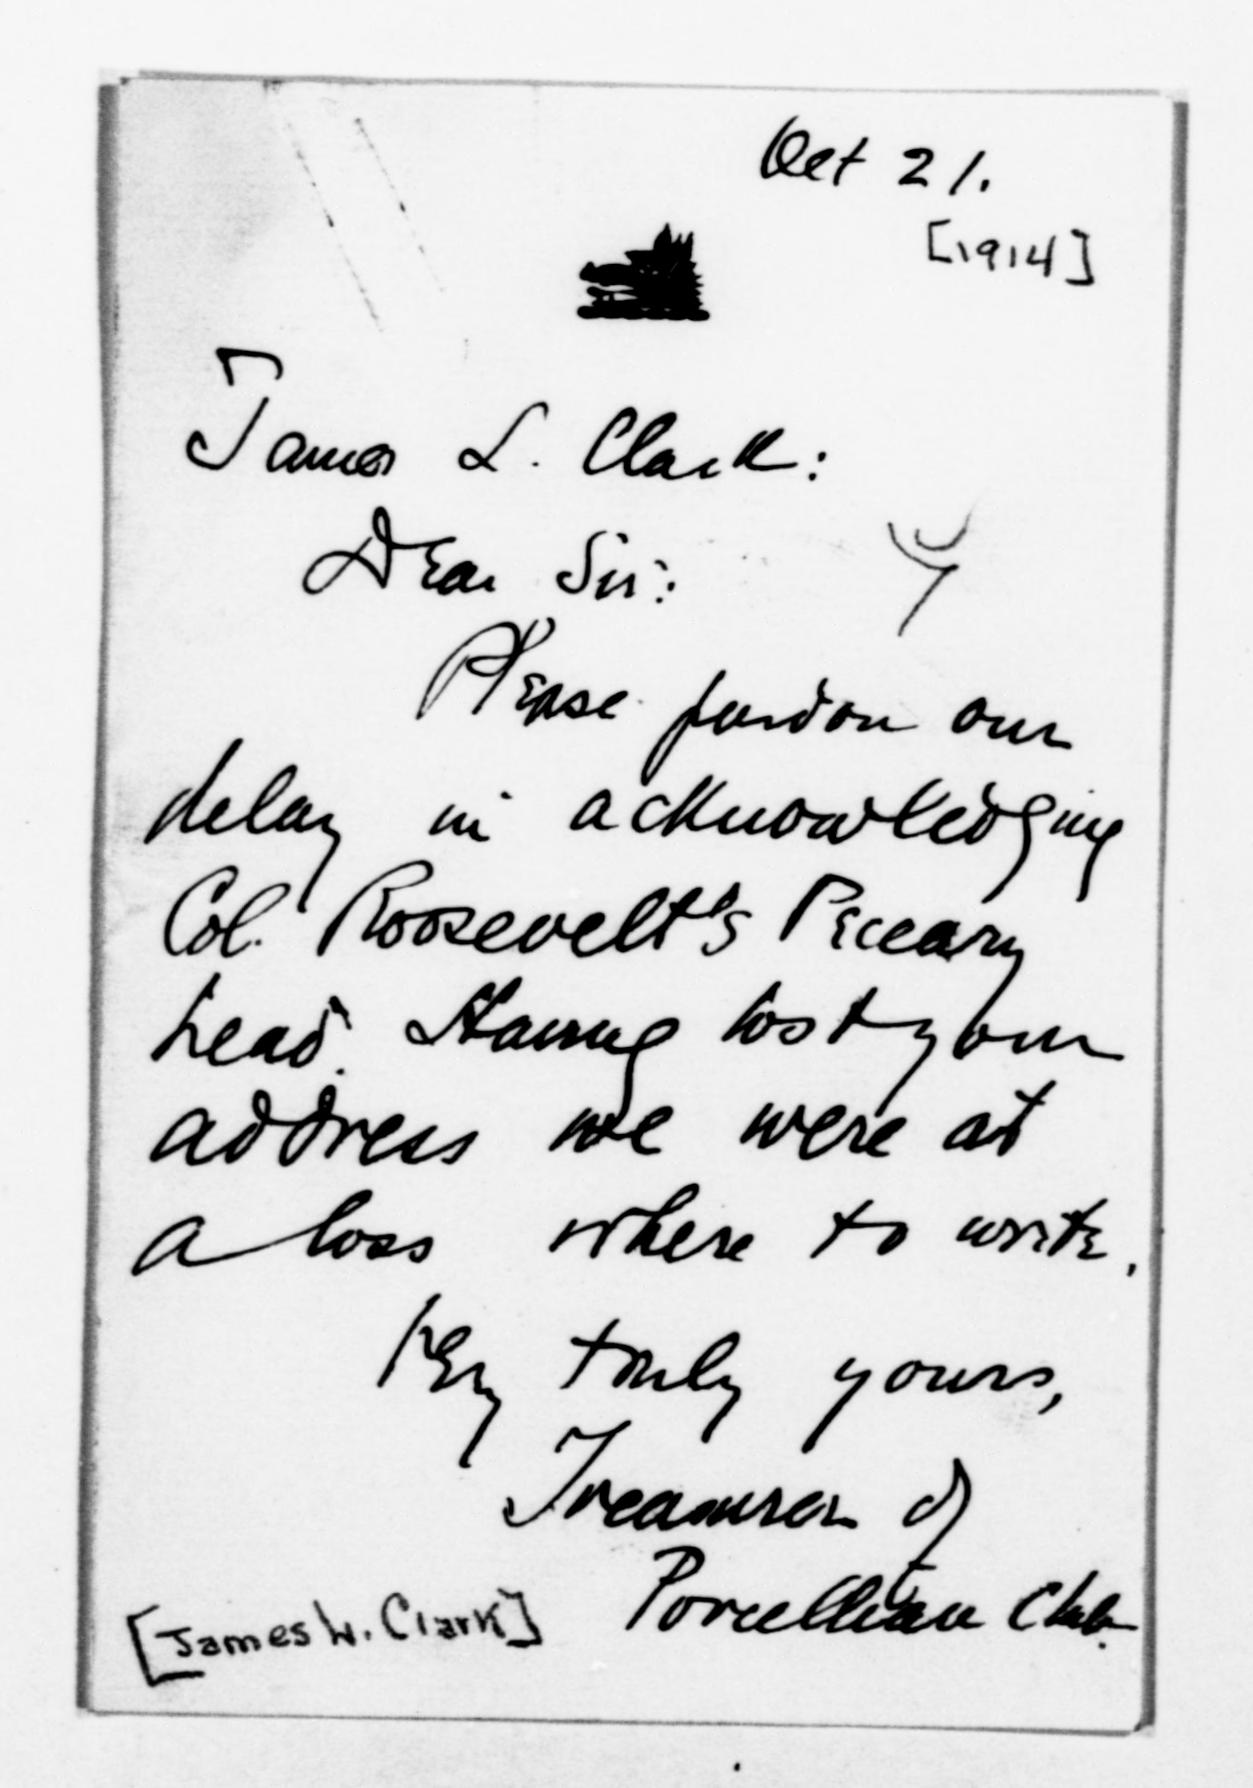 Oct 21.
[1914]
James L. Clark:
Dear Sir:
Please pardon our
delay in acknowledging
Col. Roosevelt's Peccary
head. Having lost your
address we were at
a loss where to write.
Very truly yours,
Treasurer of
Porcellian Club.
[James W. Clark]